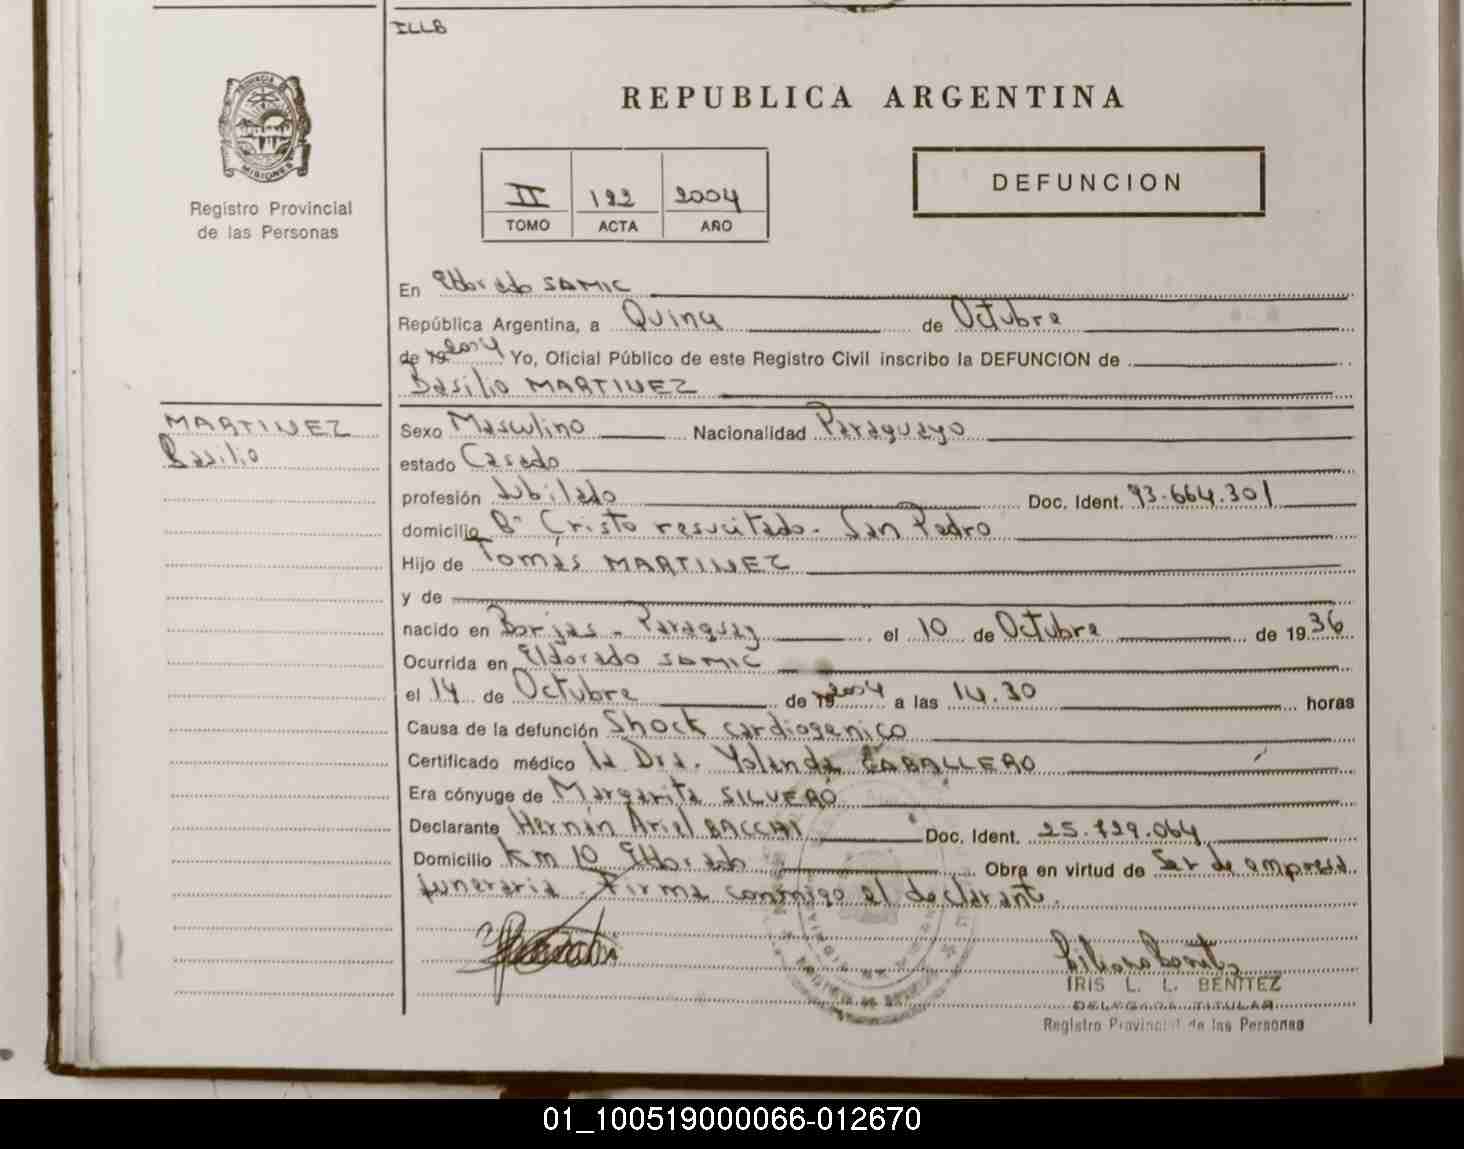 ILLB
PROVINCIA DE
MISIONES
Registro Provincial
de las Personas
REPUBLICA ARGENTINA
II 122 2004
TOMO ACTA AÑO
DEFUNCION
En Eldorado SAMIC
República Argentina, a Quince de Octubre
de 19 2004 Yo, Oficial Público de este Registro Civil inscribo la DEFUNCION de
Basilio MARTINEZ
MARTINEZ
Basilio
Sexo Masculino Nacionalidad Paraguayo
estado Casado
profesión Jubilado Doc. Ident. 93.664.301
domicilio Bº Cristo resucitado - San Pedro
Hijo de Tomás MARTINEZ
y de
nacido en Borjas - Paraguay el 10 de Octubre de 1936
Ocurrida en Eldorado SAMIC
el 14 de Octubre de 19 2004 a las 14.30 horas
Causa de la defunción Shock cardiogenico
Certificado médico la Dra. Yolanda CABALLERO
Era cónyuge de Margarita SILVERO
Declarante Hernán Ariel BACCHI Doc. Ident. 25.729.064
Domicilio Km 10 Eldorado Obra en virtud de Ser de empresa
funeraria. Firma conmigo el declarante.
IRIS L. L. BENITEZ
DELEGADA TITULAR
Registro Provincial de las Personas
01_100519000066-012670